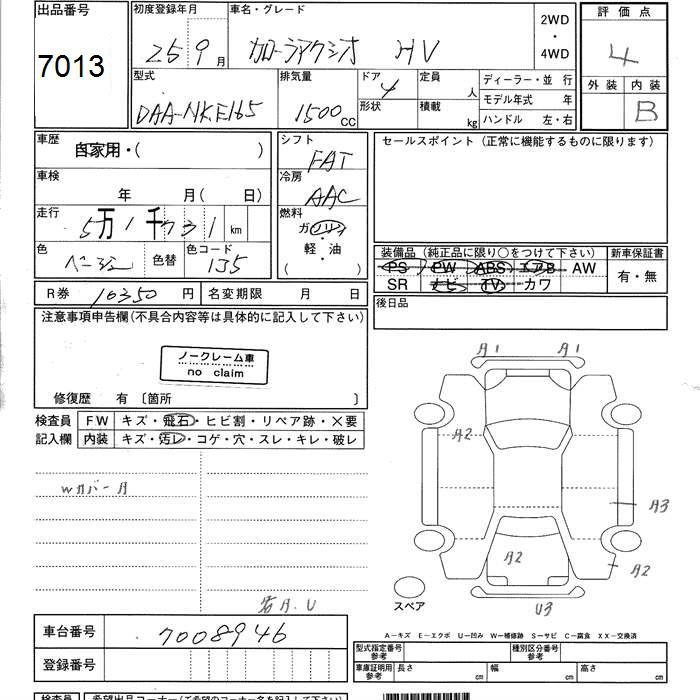 出品番号
7013
初度登録年月
25 9 月
車名・グレード
カローラアクシオ HV
2WD
・
4WD
評価点
4
外装 内装
B
型式
DAA-NKE165
排気量
1500 CC
ドア 4
形状
定員 人
積載 kg
ディーラー・並 行
モデル年式 年
ハンドル 左・右
車歴
自家用・( )
車検
年 月( 日)
走行
5万1千731 km
色
ベージュ
色替
色コード
135
シフト
FAT
冷房
AAC
燃料
ガソリン
・
軽・油
( )
セールスポイント(正常に機能するものに限ります)
装備品 (純正品に限り○をつけて下さい)
PS PW ABS エアB AW
SR ナビ TV カワ
新車保証書
有・無
後日品
R券 10350 円
名変期限 月 日
注意事項申告欄(不具合内容等は具体的に記入して下さい)
ノークレーム車
no claim
修復歴 有 〔箇所 〕
検査員
記入欄
FW キズ・飛石・ヒビ割・リペア跡・X要
内装 キズ・汚レ・コゲ・穴・スレ・キレ・破レ
Wカバー A
A.U
A1 A1
A2
A3
A2
A2
U3
スペア
A-キズ E-エクボ U-凹み W-補修跡 S-サビ C-腐食 XX-交換済
車台番号 7008946
登録番号
型式指定番号
参考
種類区分番号
参考
車庫証明用
参考
長さ cm
幅 cm
高さ cm
検査員
希望出品コーナー(ご希望のコーナー名が